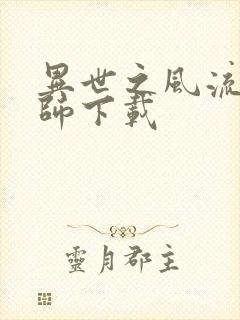 異世之風流
師下載
靈月郡主